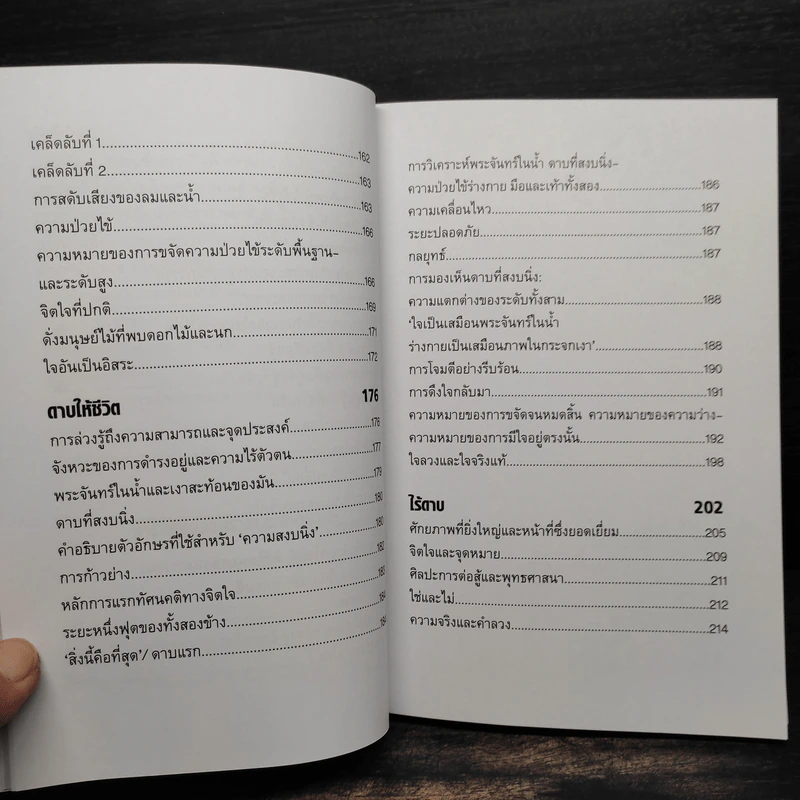 เคล็ดลับที่ 1 162
เคล็ดลับที่ 2 163
การสดับเสียงของลมและน้ำ 163
ความป่วยไข้ 166
ความหมายของการขจัดความป่วยไข้ระดับพื้นฐาน-
และระดับสูง 166
จิตใจที่ปกติ 169
ดั่งมนุษย์ไม้ที่พบดอกไม้และนก 171
ใจอันเป็นอิสระ 172
ดาบให้ชีวิต 176
การล่วงรู้ถึงความสามารถและจุดประสงค์ 176
จังหวะของการดำรงอยู่และความไร้ตัวตน 177
พระจันทร์ในน้ำและเงาสะท้อนของมัน 179
ดาบที่สงบนิ่ง 180
คำอธิบายตัวอักษรที่ใช้สำหรับ 'ความสงบนิ่ง' 180
การก้าวย่าง 182
หลักการแรกทัศนคติทางจิตใจ 183
ระยะหนึ่งฟุตของทั้งสองข้าง 184
'สิ่งนี้คือที่สุด'/ ดาบแรก 184
การวิเคราะห์พระจันทร์ในน้ำ ดาบที่สงบนิ่ง-
ความป่วยไข้ร่างกาย มือและเท้าทั้งสอง 186
ความเคลื่อนไหว 187
ระยะปลอดภัย 187
กลยุทธ์ 187
การมองเห็นดาบที่สงบนิ่ง:
ความแตกต่างของระดับทั้งสาม 188
'ใจเป็นเสมือนพระจันทร์ในน้ำ
ร่างกายเป็นเสมือนภาพในกระจกเงา' 188
การโจมตีอย่างรีบร้อน 190
การดึงใจกลับมา 191
ความหมายของการขจัดจนหมดสิ้น ความหมายของความว่าง-
ความหมายของการมีใจอยู่ตรงนั้น 192
ใจลวงและใจจริงแท้ 198
ไร้ดาบ 202
ศักยภาพที่ยิ่งใหญ่และหน้าที่ซึ่งยอดเยี่ยม 205
จิตใจและจุดหมาย 209
ศิลปะการต่อสู้และพุทธศาสนา 211
ใช่และไม่ 212
ความจริงและคำลวง 214